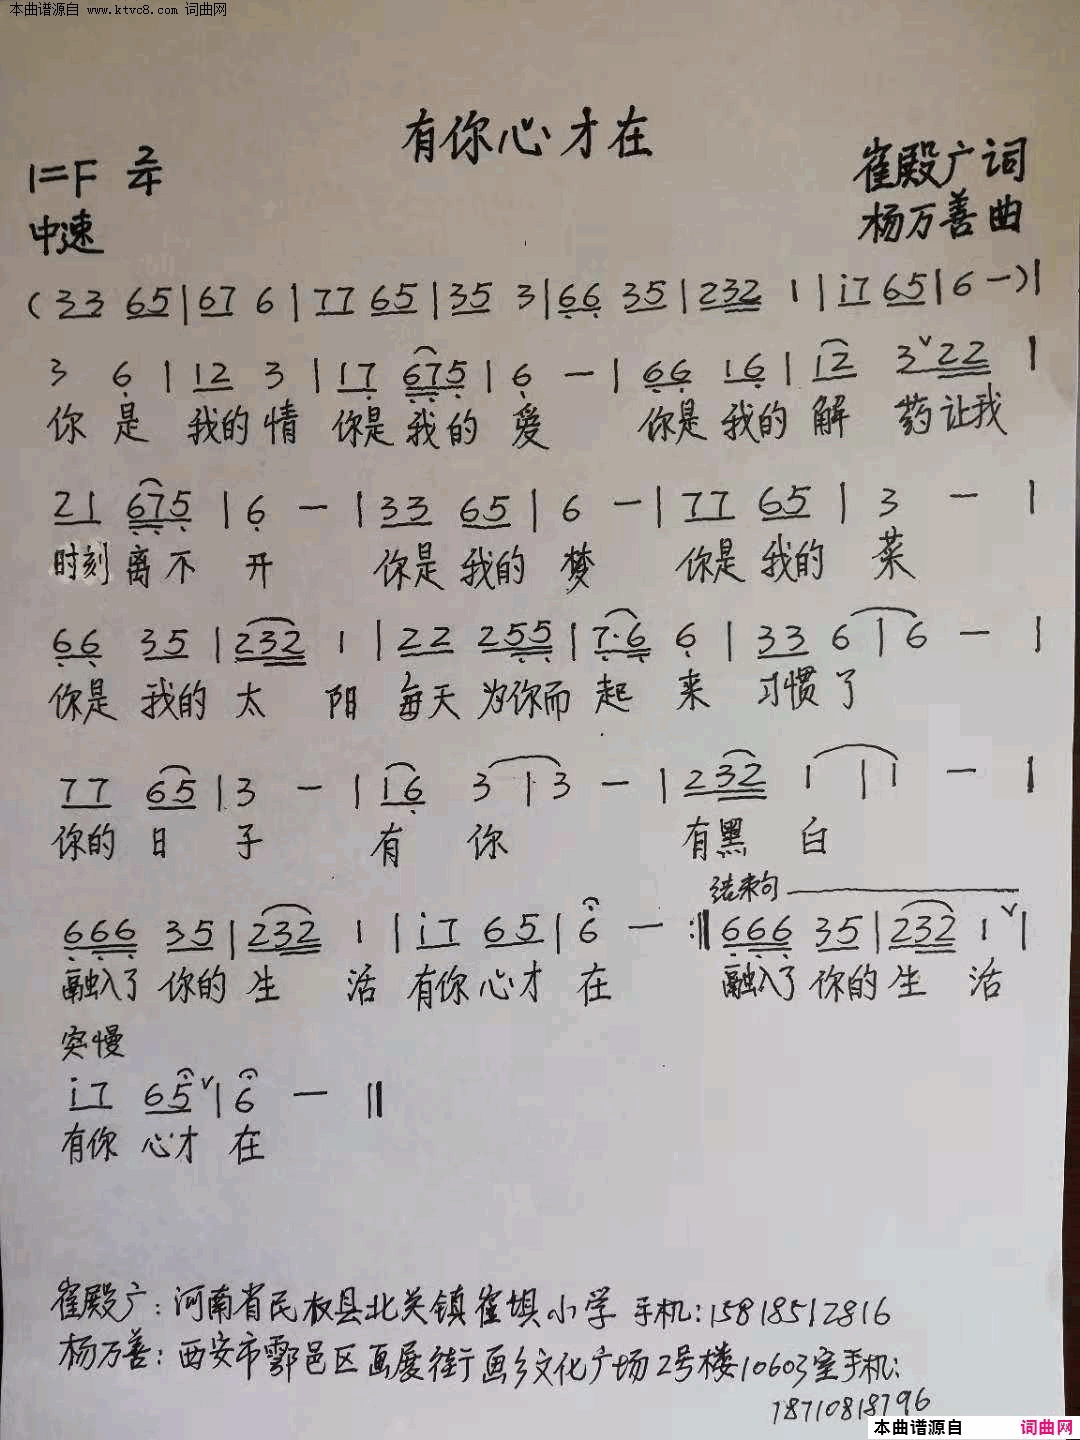 本曲谱源自 www.ktvc8.com 词曲网
有你心才在
1=F 2/4
崔殿广词
中速
杨万善曲
(33 65|67 6|77 65|35 3|66 35|232 1|i7 65|6 -)|
3 6|12 3|17 675|6 -|66 16|12 3ˇ22|
你是 我的情 你是我的 爱 你是我的解 药让我
21 675|6 -|33 65|6 -|77 65|3 -|
时刻离不 开 你是我的梦 你是我的 菜
66 35|232 1|22 255|7·6 6|33 6|6 -|
你是 我的太 阳 每天为你而起 来 习惯了
77 65|3 -|16 3|3 -|232 1|1 -|
你的 日 子 有 你 有黑 白
结束句
666 35|232 1|i7 65|6 -:‖666 35|232 1ˇ|
融入了 你的生 活 有你心才 在 融入了 你的生 活
突慢
i7 65ˇ|6 -‖
有你 心才 在
崔殿广:河南省民权县北关镇崔坝小学 手机:15818512816
杨万善:西安市鄠邑区画展街画乡文化广场2号楼10603室手机:
18710818796
本曲谱源自 词曲网